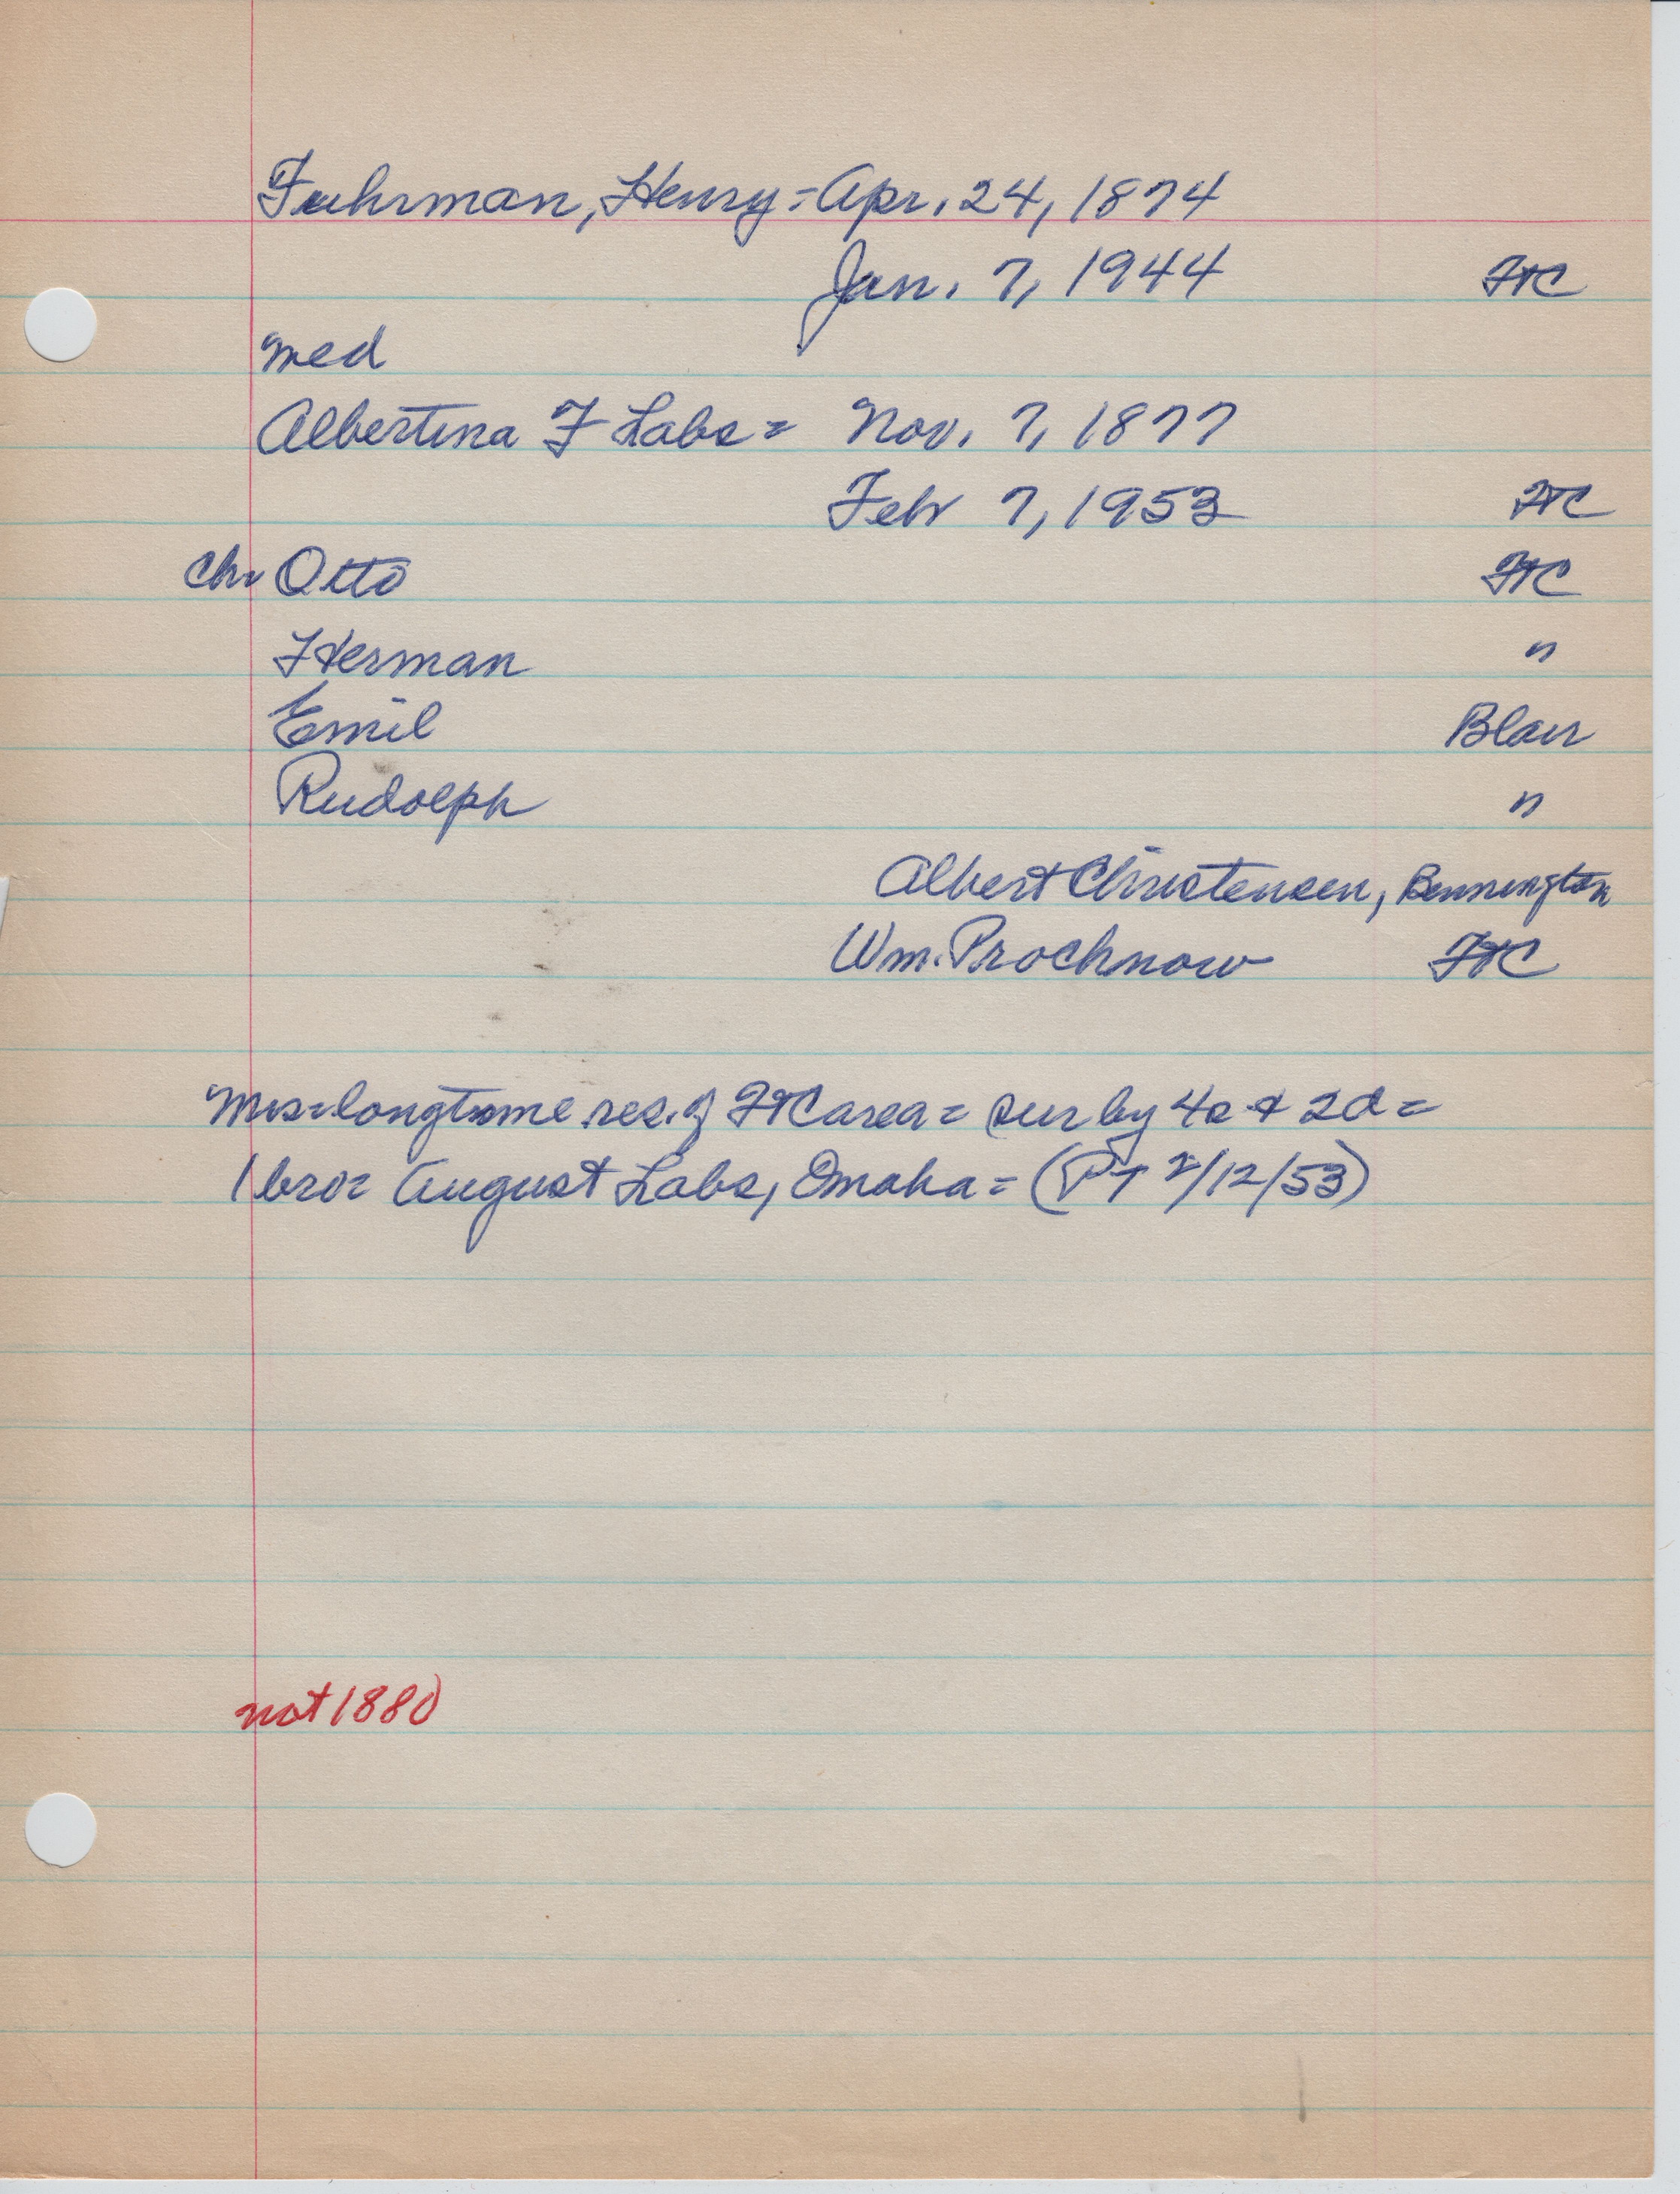 Fuhrman, Henry = Apr. 24, 1874
Jan. 7, 1944 FTC
med
Albertina F Labs = Nov. 7, 1877
Febr 7, 1953 FTC
Chr Otto FTC
Herman "
Emil Blair
Rudolph "
Albert Christensen, Bennington
Wm. Prochnow FTC
Mrs = longtime res. of FTC area = sur by 4s & 2d =
1 bro = August Labs, Omaha = (PT 2/12/53)
not 1880